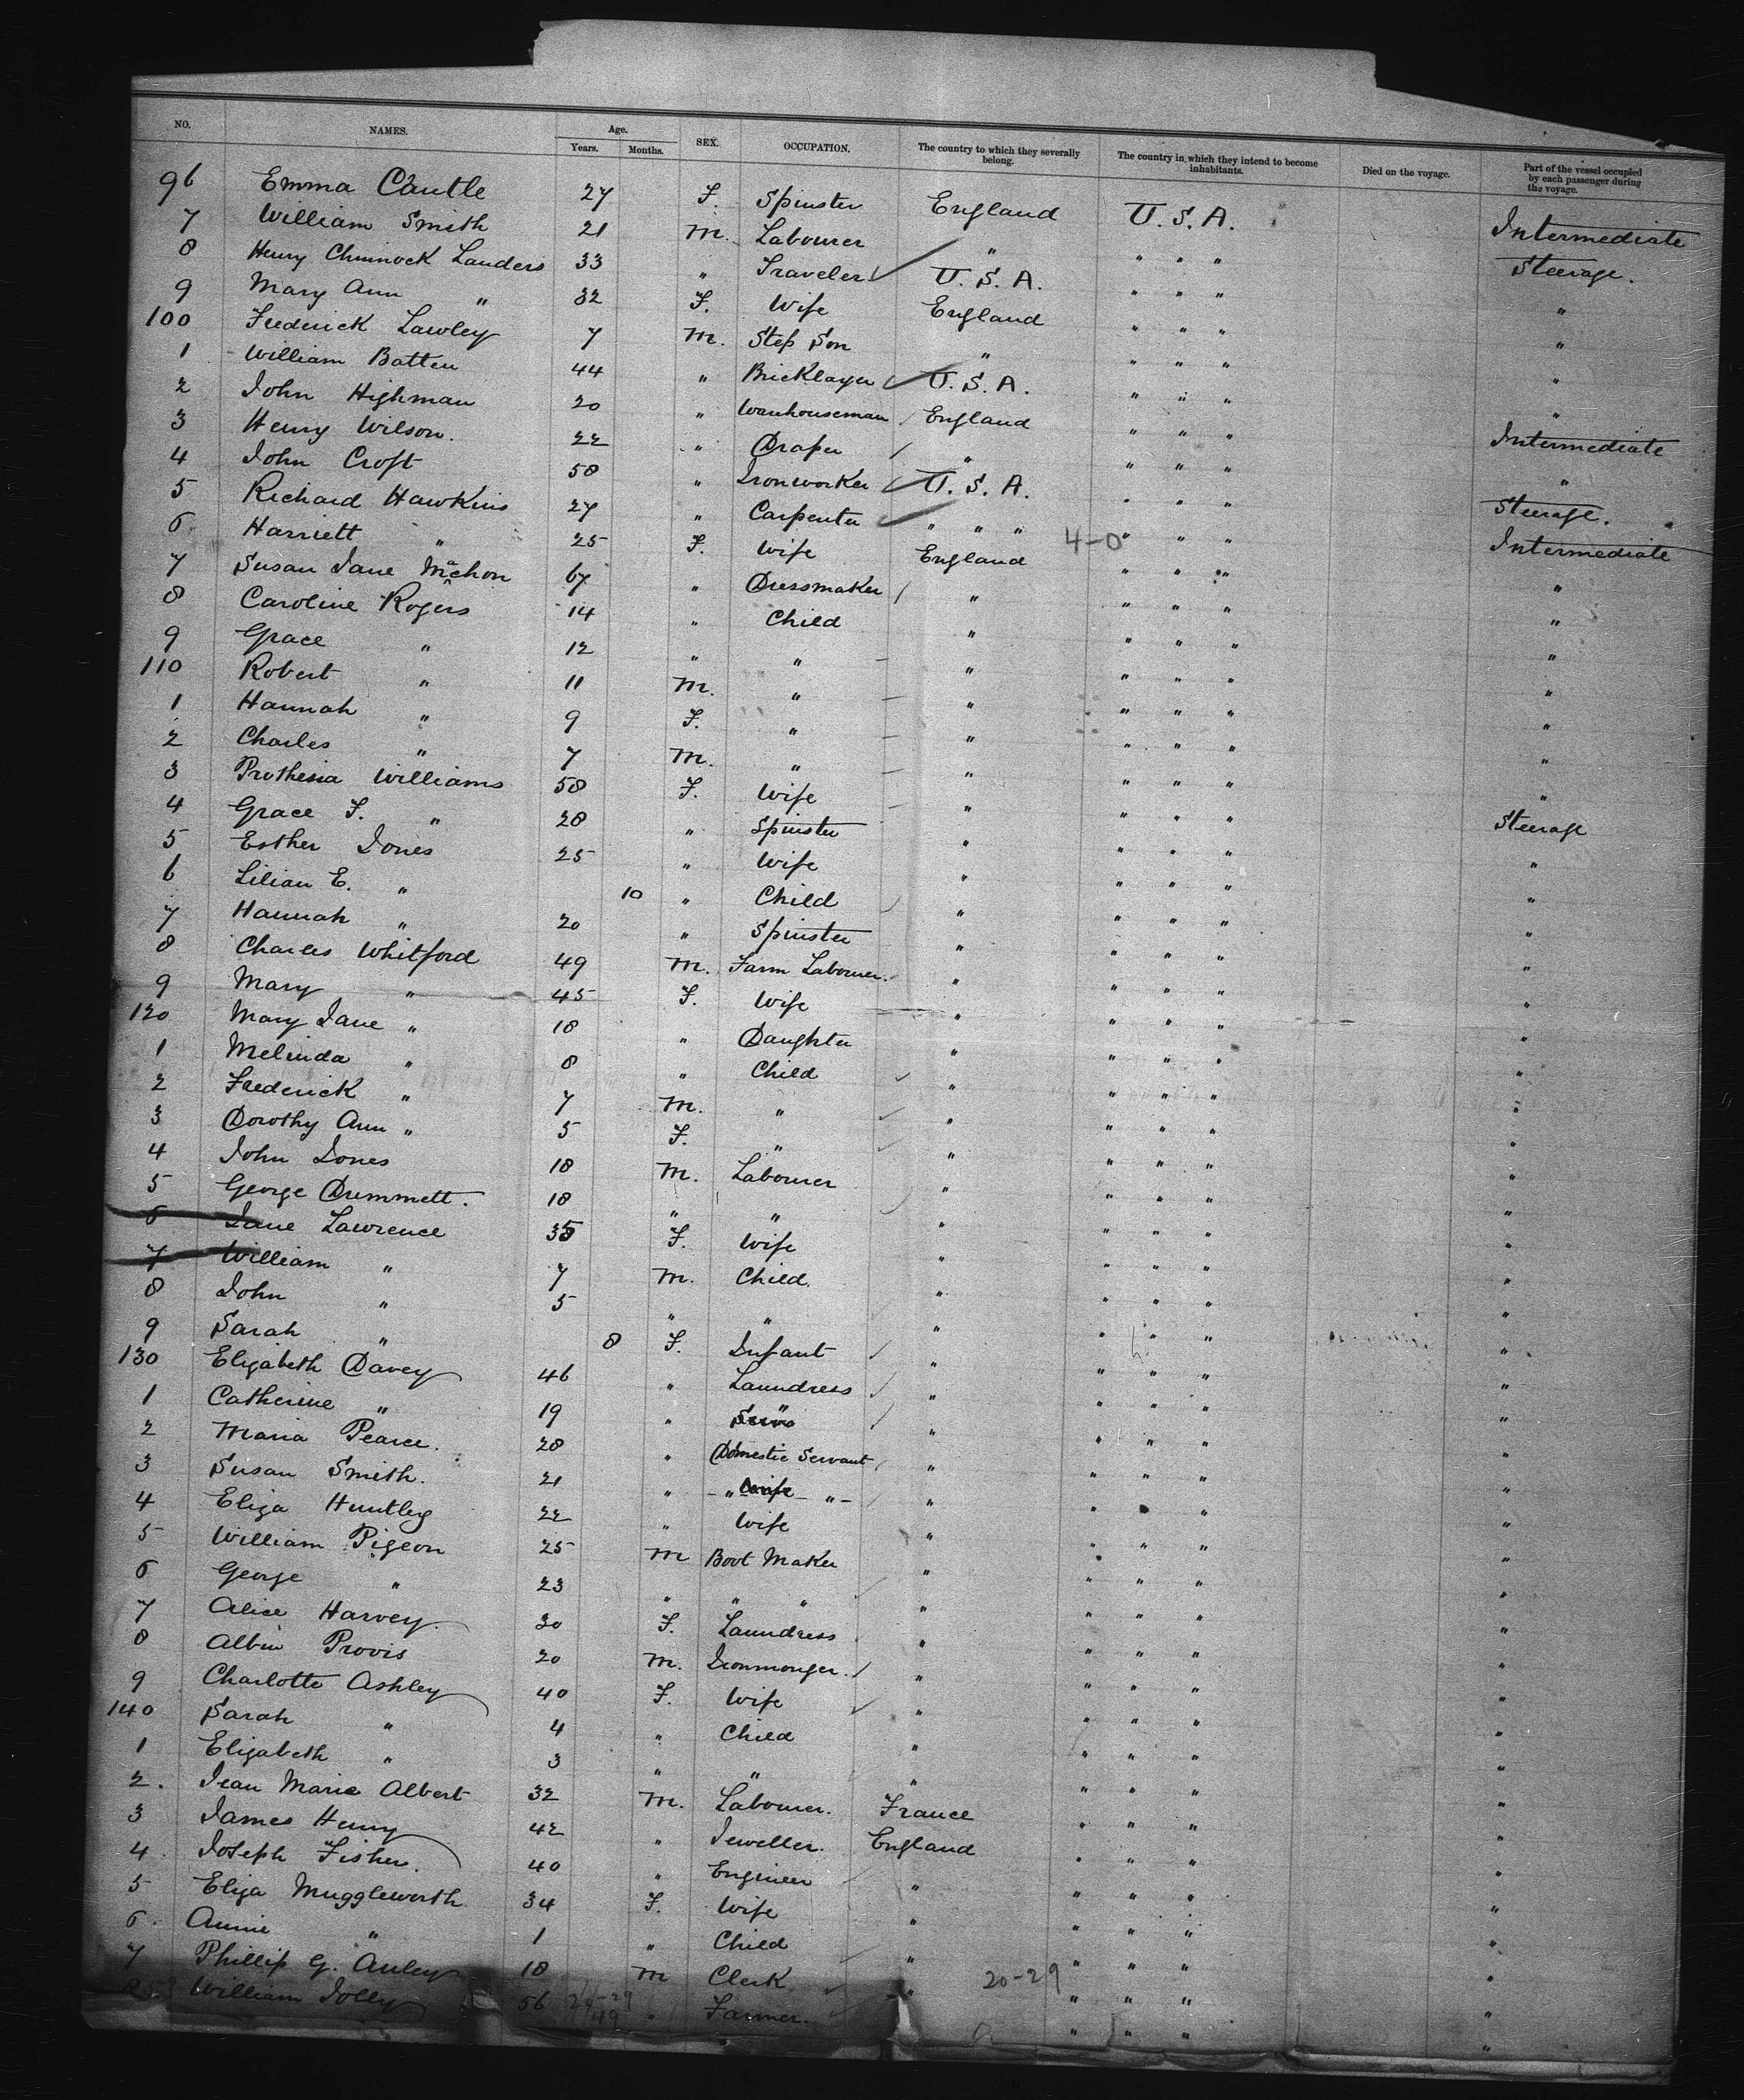 NO. NAMES. Age. Years. Months. SEX. OCCUPATION. The country to which they severally belong. The country in which they intend to become inhabitants. Died on the voyage. Part of the vessel occupied by each passenger during the voyage.
96 Emma Cautle 27 F. Spinster England U.S.A. Intermediate
7 William Smith 21 M. Labourer " " " " Steerage.
8 Henry Chinnock Landers 33 " Traveler U.S.A. " " " "
9 Mary Ann " 32 F. Wife England " " " "
100 Frederick Lawley 7 M. Step Son " " " " "
1 William Batten 44 " Bricklayer U.S.A. " " " "
2 John Highman 20 " Warehouseman England " " " Intermediate
3 Henry Wilson. 22 " Draper " " " " "
4 John Croft 58 " Ironworker U.S.A. " " " Steerage.
5 Richard Hawkins 27 " Carpenter " " " 4-0 " " " Intermediate
6 Harriett " 25 F. Wife England " " " "
7 Susan Jane Michon 67 " Dressmaker " " " " "
8 Caroline Rogers 14 " Child " " " " "
9 Grace " 12 " " " " " " "
110 Robert " 11 M. " " " " " "
1 Hannah " 9 F. " " " " " "
2 Charles " 7 M. " " " " " "
3 Prothesia Williams 58 F. Wife " " " " Steerage
4 Grace F. " 28 " Spinster " " " " "
5 Esther Jones 25 " Wife " " " " "
6 Lilian E. " 10 " Child " " " " "
7 Hannah " 20 " Spinster " " " " "
8 Charles Whitford 49 M. Farm Labourer. " " " " "
9 Mary " 45 F. Wife " " " " "
120 Mary Jane " 18 " Daughter " " " " "
1 Melinda " 8 " Child " " " " "
2 Frederick " 7 M. " " " " " "
3 Dorothy Ann " 5 F. " " " " " "
4 John Jones 18 M. Labourer " " " " "
5 George Dummett. 18 " " " " " " "
6 Jane Lawrence 35 F. Wife " " " " "
7 William " 7 M. Child. " " " " "
8 John " 5 " " " " " " "
9 Sarah " 8 F. Infant " " " " "
130 Elizabeth Davey 46 " Laundress " " " " "
1 Catherine " 19 " " " " " " "
2 Maria Pearce. 28 " Domestic Servant " " " " "
3 Susan Smith. 21 " " " " " " " "
4 Eliza Huntley 22 " Wife " " " " "
5 William Pigeon 25 M Boot Maker " " " " "
6 George " 23 " " " " " " " "
7 Alice Harvey. 30 F. Laundress " " " " "
8 Albin Provis 20 M. Ironmonger. " " " " "
9 Charlotte Ashley 40 F. Wife " " " " "
140 Sarah " 4 " Child " " " " "
1 Elizabeth " 3 " " " " " " "
2. Jean Marie Albert 32 M. Labourer. France " " " "
3 James Henry 42 " Jeweller. England " " " "
4 Joseph Fisher. 40 " Engineer " " " " "
5 Eliza Muggleworth 34 F. Wife " " " " "
6. Annie " 1 " Child " " " " "
7 Phillip G. Auley 18 M Clerk " 20-29 " " " "
William Jolly 56 " Farmer. " " " " "